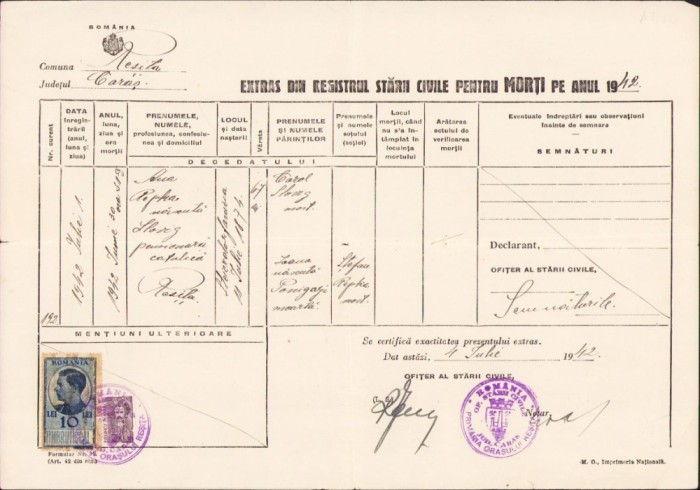 ROMÂNIA
Comuna Resita
Județul Caraș
EXTRAS DIN REGISTRUL STĂRII CIVILE PENTRU MORȚI PE ANUL 1942.
Nr. curent
DATA
înregis-
trării
(anul,
luna și
ziua)
ANUL,
luna,
ziua și
ora
morții
PRENUMELE,
NUMELE,
profesiunea, confesiu-
nea și domiciliul
LOCUL
și data
nașterii
Vârsta
PRENUMELE
ȘI NUMELE
PĂRINȚILOR
Prenumele
și numele
soțului
(soției)
Locul
morții, când
nu s'a în-
tâmplat în
locuința
mortului
Arătarea
actului de
verificarea
morții
Eventuale îndreptări sau observațiuni
înainte de semnare
SEMNĂTURI
DECEDATULUI
192
1942 Iulie 1.
1942 Iunie 30
Ana
Ripka
născută
Slovig
pensionară
catolică
Resita
11 Iulie 1874
67
Carol
Slovig
mort.
Ioana
născută
moartă
Stefan
Ripka
mort.
Declarant,
OFIȚER AL STĂRII CIVILE,
Semnăturile.
MENȚIUNI ULTERIOARE
Se certifică exactitatea prezentului extras.
Dat astăzi, 4 Iulie 1942.
OFIȚER AL STĂRII CIVILE,
Notar,
ROMANIA
LEI 10 LEI
ROMANIA
OF. STĂRII CIVILE
JUD. CARAȘ
PRIMĂRIA ORAȘULUI REȘIȚA
Formular No.
(M. O., Imprimeria Națională.